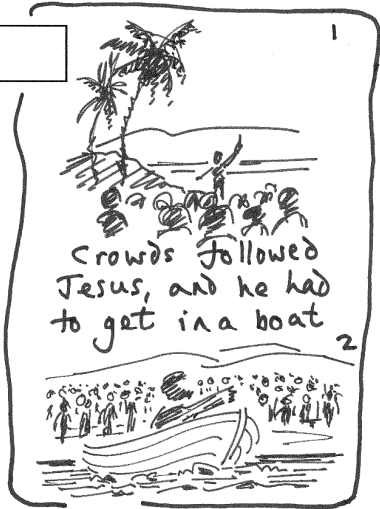 1
Crowds followed
Jesus, and he had
to get in a boat
2